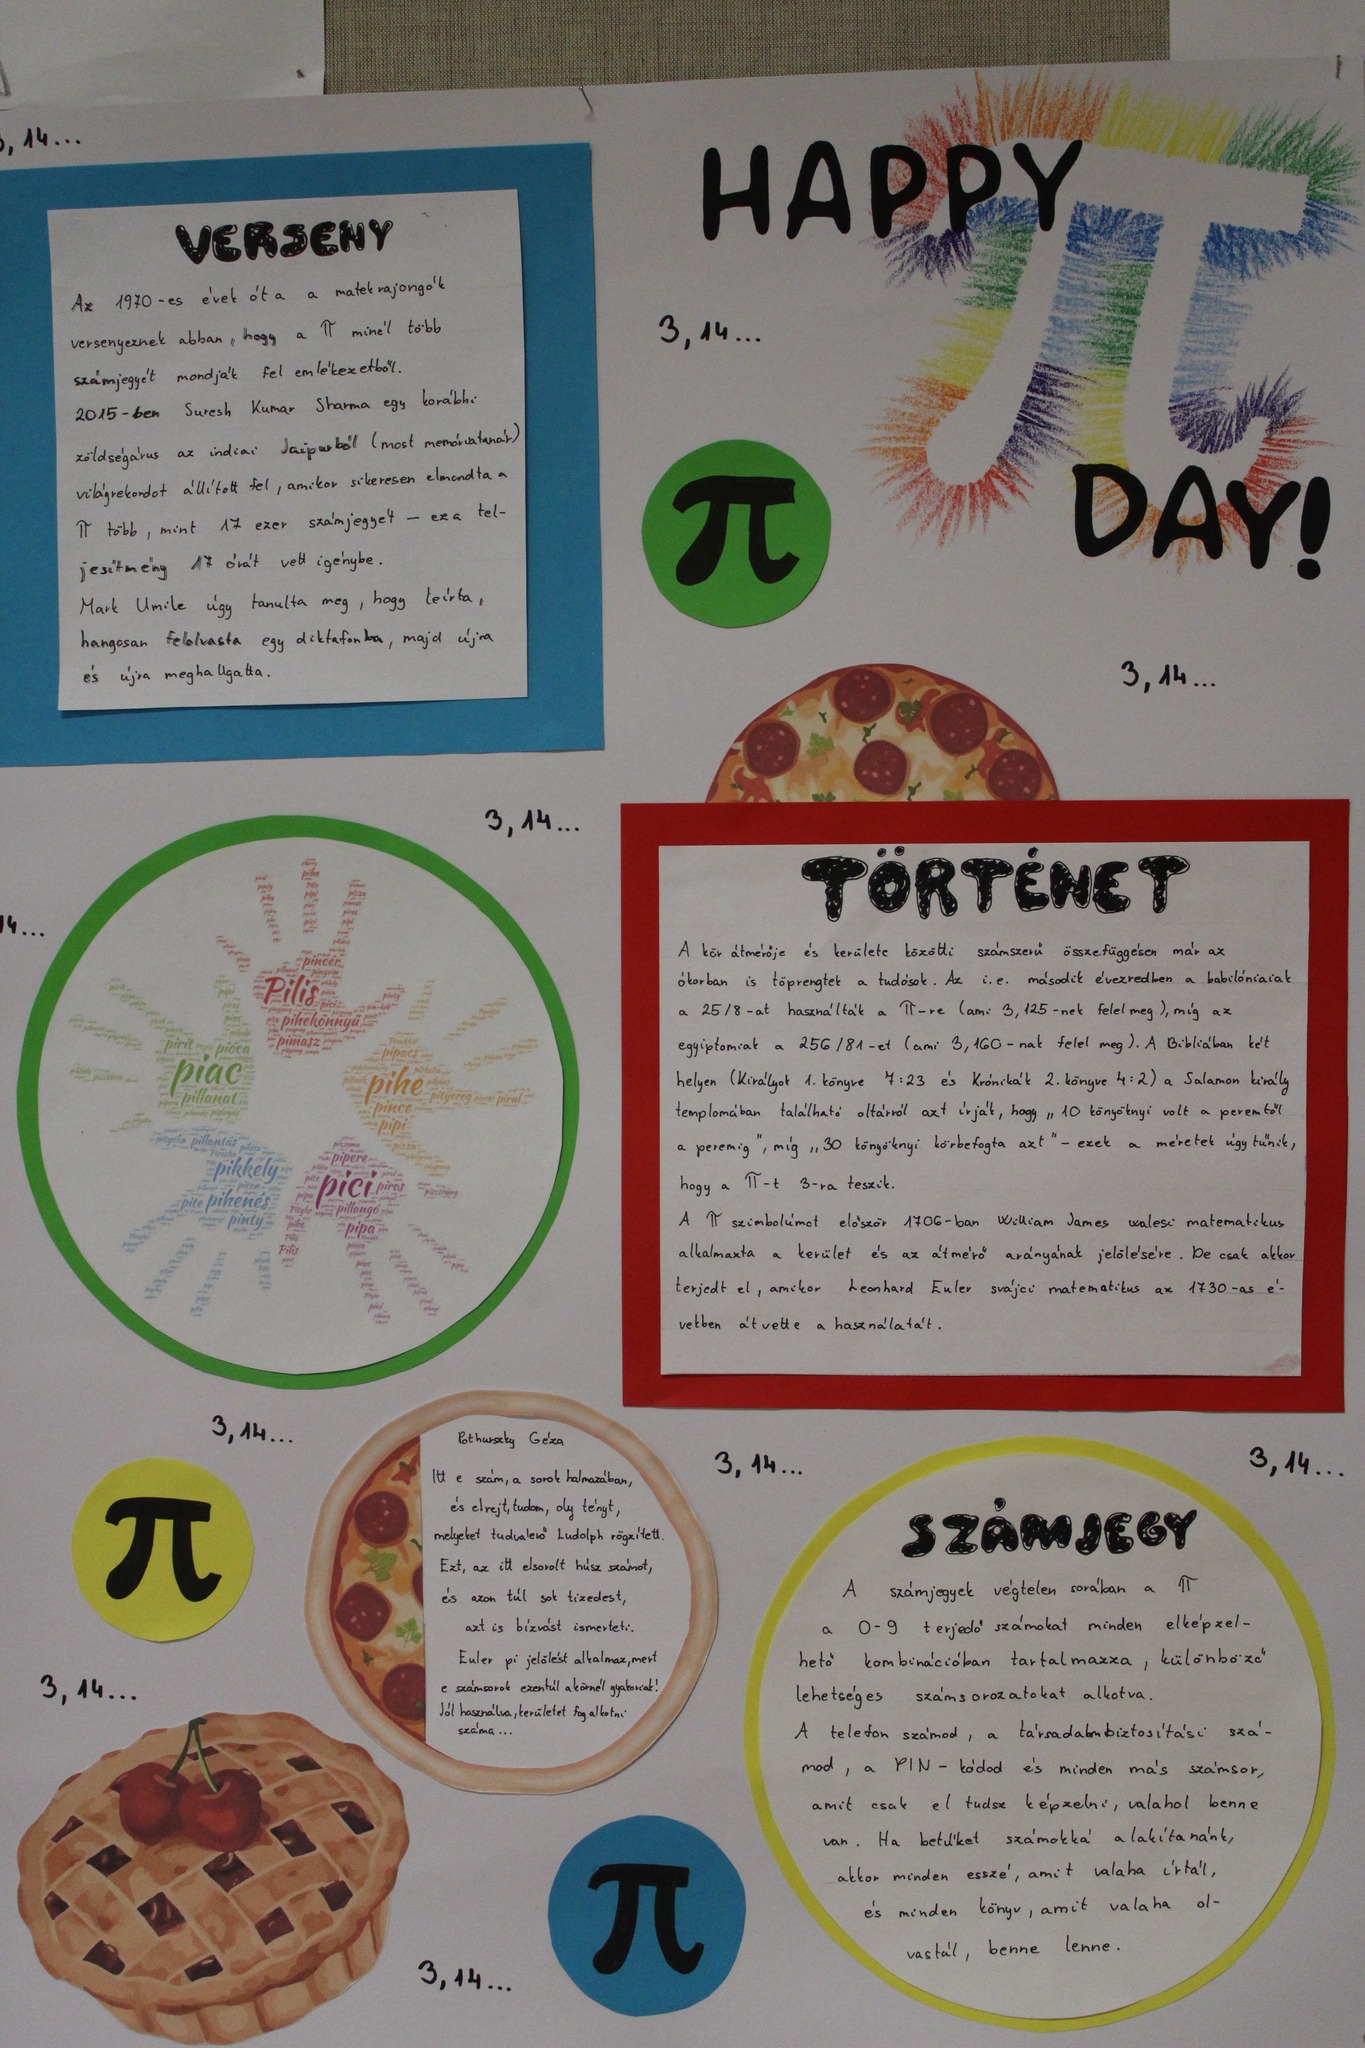 3, 14...
HAPPY
π
DAY!
VERSENY
Az 1970-es évek óta a matekrajongók
versenyeznek abban, hogy a π minél több
számjegyét mondják fel emlékezetből.
2015-ben Suresh Kumar Sharma egy korábbi
zöldségárus az indiai Jaipurból (most memóriatanár)
világrekordot állított fel, amikor sikeresen elmondta a
π több, mint 17 ezer számjegyét — ez a tel-
jesítmény 17 órát vett igénybe.
Mark Umile úgy tanulta meg, hogy leírta,
hangosan felolvasta egy diktafonba, majd újra
és újra meghallgatta.
3, 14...
π
3, 14...
3, 14...
14...
pincér
Pilis
pihekönnyű
pimasz
pirit
pióca
piac
pillanat
pipacs
pihe
pince
pipi
pitypang
pillantás
pikkely
pihenés
pinty
pipere
pici
piros
pillangó
pipa
TÖRTÉNET
A kör átmérője és kerülete közötti számszerű összefüggésen már az
ókorban is töprengtek a tudósok. Az i.e. második évezredben a babilóniaiak
a 25/8-at használták a π-re (ami 3,125-nek felel meg), míg az
egyiptomiak a 256/81-et (ami 3,160-nak felel meg). A Bibliában két
helyen (Királyok 1. könyve 7:23 és Krónikák 2. könyve 4:2) a Salamon király
templomában található oltárról azt írják, hogy „10 könyöknyi volt a peremtől
a peremig", míg „30 könyöknyi körbefogta azt" - ezek a méretek úgy tűnik,
hogy a π-t 3-ra teszik.
A π szimbólumot először 1706-ban William James walesi matematikus
alkalmazta a kerület és az átmérő arányának jelölésére. De csak akkor
terjedt el, amikor Leonhard Euler svájci matematikus az 1730-as é-
vekben átvette a használatát.
3, 14...
3, 14...
3, 14...
π
Pothurszky Géza
Itt e szám, a sorok halmazában,
és elrejt, tudom, oly tényt,
melyeket tudvalevő Ludolph rögzített.
Ezt, az itt elsorolt húsz számot,
és azon túl sok tizedest,
azt is bízvást ismerteti.
Euler pi jelölést alkalmaz, mert
e számsorok ezentúl a körnél gyakoriak!
Jól használva, kerületet fog alkotni
száma...
SZÁMJEGY
A számjegyek végtelen sorában a π
a 0-9 terjedő számokat minden elképzel-
hető kombinációban tartalmazza, különböző
lehetséges számsorozatokat alkotva.
A telefon számod, a társadalmbiztosítási szá-
mod, a PIN-kódod és minden más számsor,
amit csak el tudsz képzelni, valahol benne
van. Ha betűket számokká alakítanánk,
akkor minden esszé, amit valaha írtál,
és minden könyv, amit valaha ol-
vastál, benne lenne.
3, 14...
π
3, 14...